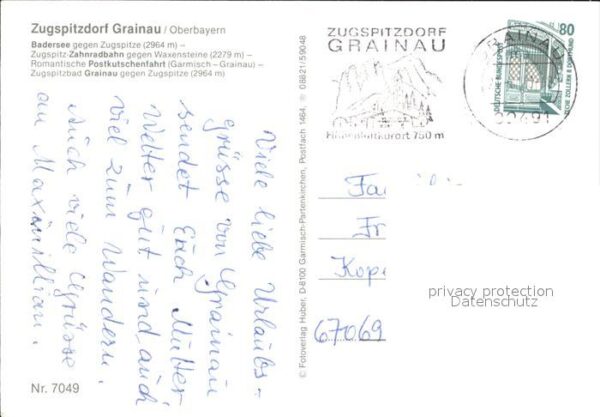 Zugspitzdorf Grainau / Oberbayern
Badersee gegen Zugspitze (2964 m) –
Zugspitz-Zahnradbahn gegen Waxensteine (2279 m) –
Romantische Postkutschenfahrt (Garmisch – Grainau) –
Zugspitzbad Grainau gegen Zugspitze (2964 m)
Viele liebe Urlaubs-
grüsse von Grainau
sendet Euch Mutter
Wetter gut und auch
viel zum Wandern.
Auch viele Grüsse
an Maximillian.
Nr. 7049
© Fotoverlag Huber, D-8100 Garmisch-Partenkirchen, Postfach 1464 ⊛ 08821/59048
ZUGSPITZDORF
GRAINAU
Höhenluftkurort 750 m
GRAINAU
82491
80
DEUTSCHE BUNDESPOST
ZECHE ZOLLERN II DORTMUND
Fa
Fr
Kop
67069
privacy protection
Datenschutz